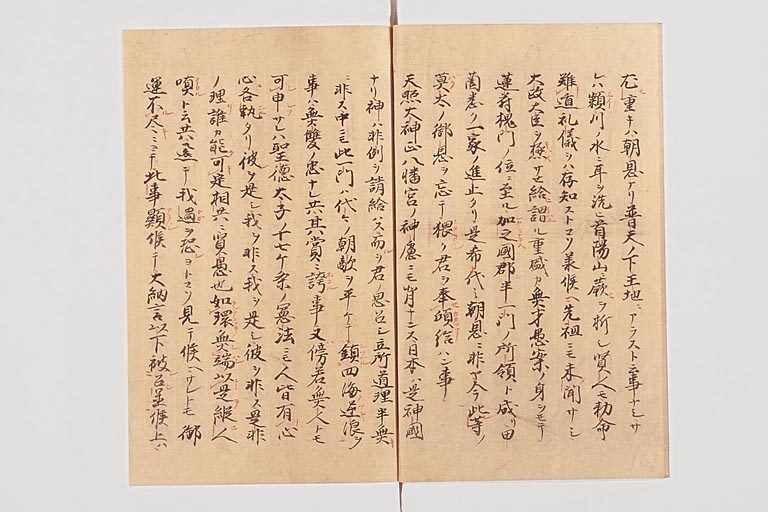 尤重キハ朝恩ナリ普天ノ下王地ニアラスト云事ナシサ
レハ頴川ノ水ニ耳ヲ洗ヒ首陽山ニ蕨ヲ折シ賢人モ勅命
難道礼儀ヲハ存知ストコソ承候ヘ先祖ニモ未聞サシ
大政大臣ヲ極サセ給謂ル重盛カ無才愚案ノ身ヲモテ
蓮府槐門ノ位ニ至ル加之國郡半一門ノ所領ト成リ田
薗悉ク一家ノ進止タリ是希代ノ朝恩ニ非ヤ今此等ノ
莫太ノ御恩ヲ忘テ猥ク君ヲ奉傾給ハン事
天照大神正八幡宮ノ神慮ニモ背ナンス日本ハ是神國
ナリ神ハ非例ヲ請給ハス而ヲ君ノ思召立所道理半無
ニ非ス中ニモ此一門ハ代々ノ朝敵ヲ平ケテ鎮四海逆浪ヲ
事ハ無雙ノ忠ナレ共其賞ニ誇事ハ又傍若無人トモ
可申サレハ聖徳太子ノ十七ケ条ノ憲法ニモ人皆有心
心各執アリ彼ヲ是シ我ヲ非ス我ヲ是シ彼ヲ非ス是非
ノ理誰カ能可定相共ニ賢愚也如環無端以是縦人
嗔ト云共還テ我過ヲ恐ヨトコソ見テ候ヘサレトモ御
運不尽ニテ此事顯候テ大納言以下被召置候上ハ